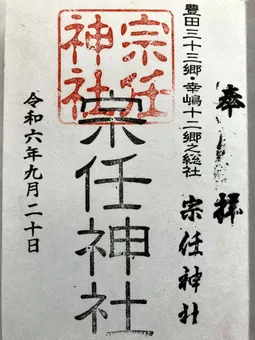 奉拝
豊田三十三郷・幸嶋十二郷之総社
宗任神社
宗任神社
宗任神社
令和六年九月二十日